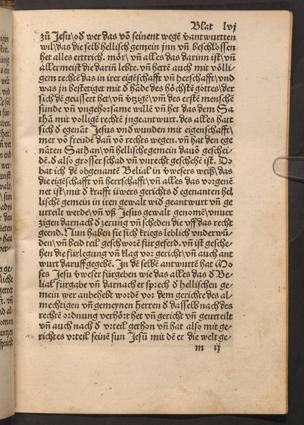 Blat lvj
zů Jesu/od wer das vō seinent wegē vantwurtten
wil/das die selb hellisch gemein jnn vn̄ beschlossen
het alles erttrich. mör/ vn̄ alles das darinn ist/ vn̄
allermeist die darin̄ lebē. vn̄ hette auch mit völli
gem rechtē das in irer eigēschafft vn̄ herschafft/vnd
was in bestetiget mit d hāde des höchstē gottes/der
sich dē geussert het/vn̄ vm des erstē mensche
sünde vn̄ ungehorsame willē vn̄ het das dem Sa
thā mit volligē rechtē jngeantwurt. des alles hatt
sich d egenāt Jesus vnd wunden mit eigenschafft/
mer vō freidē dan̄ vō rechtes wegen. vn̄ hat den ege
nātē Sathan/vn̄ hellischē gemein dauō geschei
dē. d also grosser schad vn̄ vnrecht geschehē ist. Do
bat ich dē obgenant Belial in ewers weiß/das
die eigēschafft vn̄ herschafft/vn̄ alles das vorgenē
net ist/mit d krafft üwers gerichts d egenantē hel
lischē gemein in iren gewalt wid geantwurt vn̄ ge
urteilt werde/vn̄ vß Jesus gewalt genomē/
vn̄ d das recht
geend. Nun haben sie sich kriegs beder
vn̄ beid teil geschworē für geferd. vn̄ ist gesche
hen die fürlegung vn̄ klag vor gericht/vn̄ auch ant
wurt daruff gegebē. In de selbē antwurtē hat
ses Jesu vweser fürgeben wie das alles das d Be
lial fürgabe vn̄ darnach er sprech d hellischen ge
mein wer anbehebt wordē vor dem gerichte des al
mechtigen vn̄ gemeinen herren d dasselb nach des
rechtē ordnung verhört het vn̄ gericht vn̄ geurteilt
vn̄ auch nach d vrteil gethon vn̄ hat also mit ge
richtes vrteil seinē sun Jesū mit dē er die welt ge
m ij